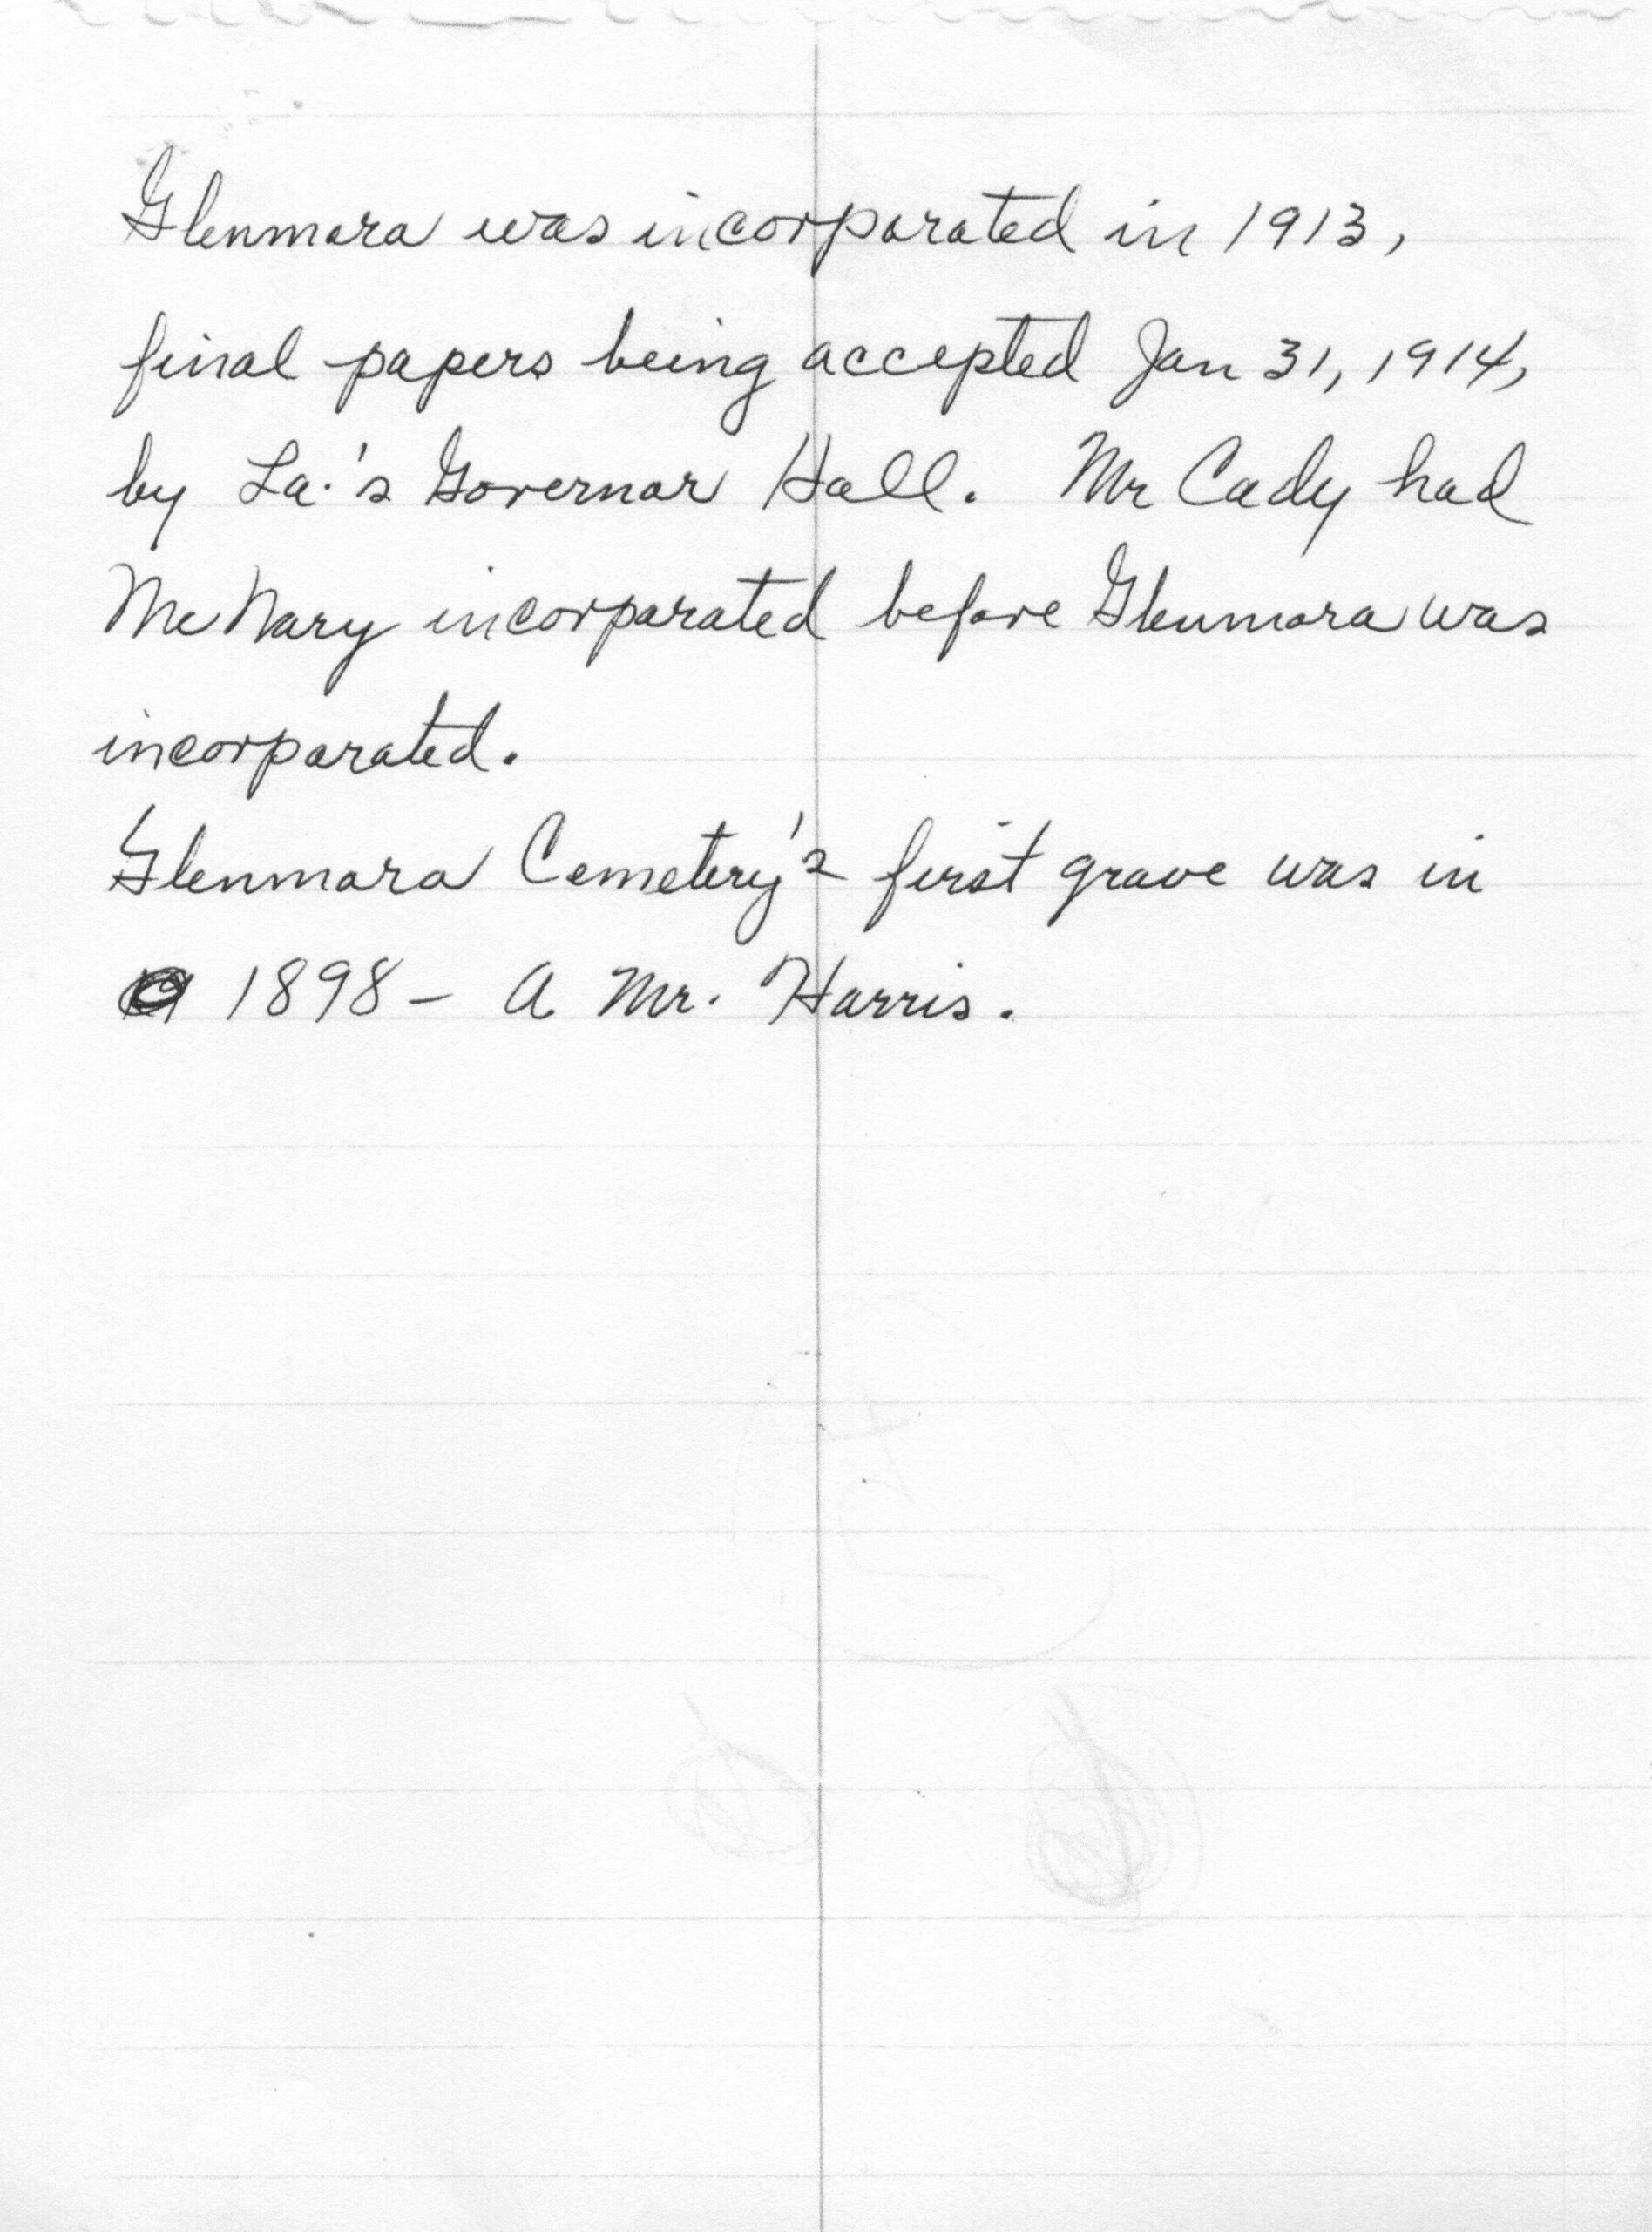 Glenmora was incorporated in 1913,
final papers being accepted Jan 31, 1914,
by La.'s Governor Hall. Mr Cady had
McNary incorporated before Glenmora was
incorporated.
Glenmora Cemetery's first grave was in
1898 - A Mr. Harris.